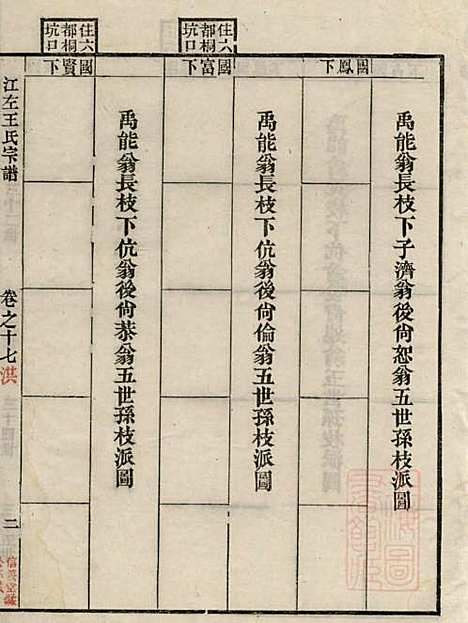 禹能翁長枝下子濟翁後尙恕翁五世孫枝派圖
國鳳下
禹能翁長枝下伉翁後尙倫翁五世孫枝派圖
住六都桐坑口
國富下
禹能翁長枝下伉翁後尙恭翁五世孫枝派圖
住六都桐坑口
國賢下
江左王氏宗譜
卷之十七 洪
二